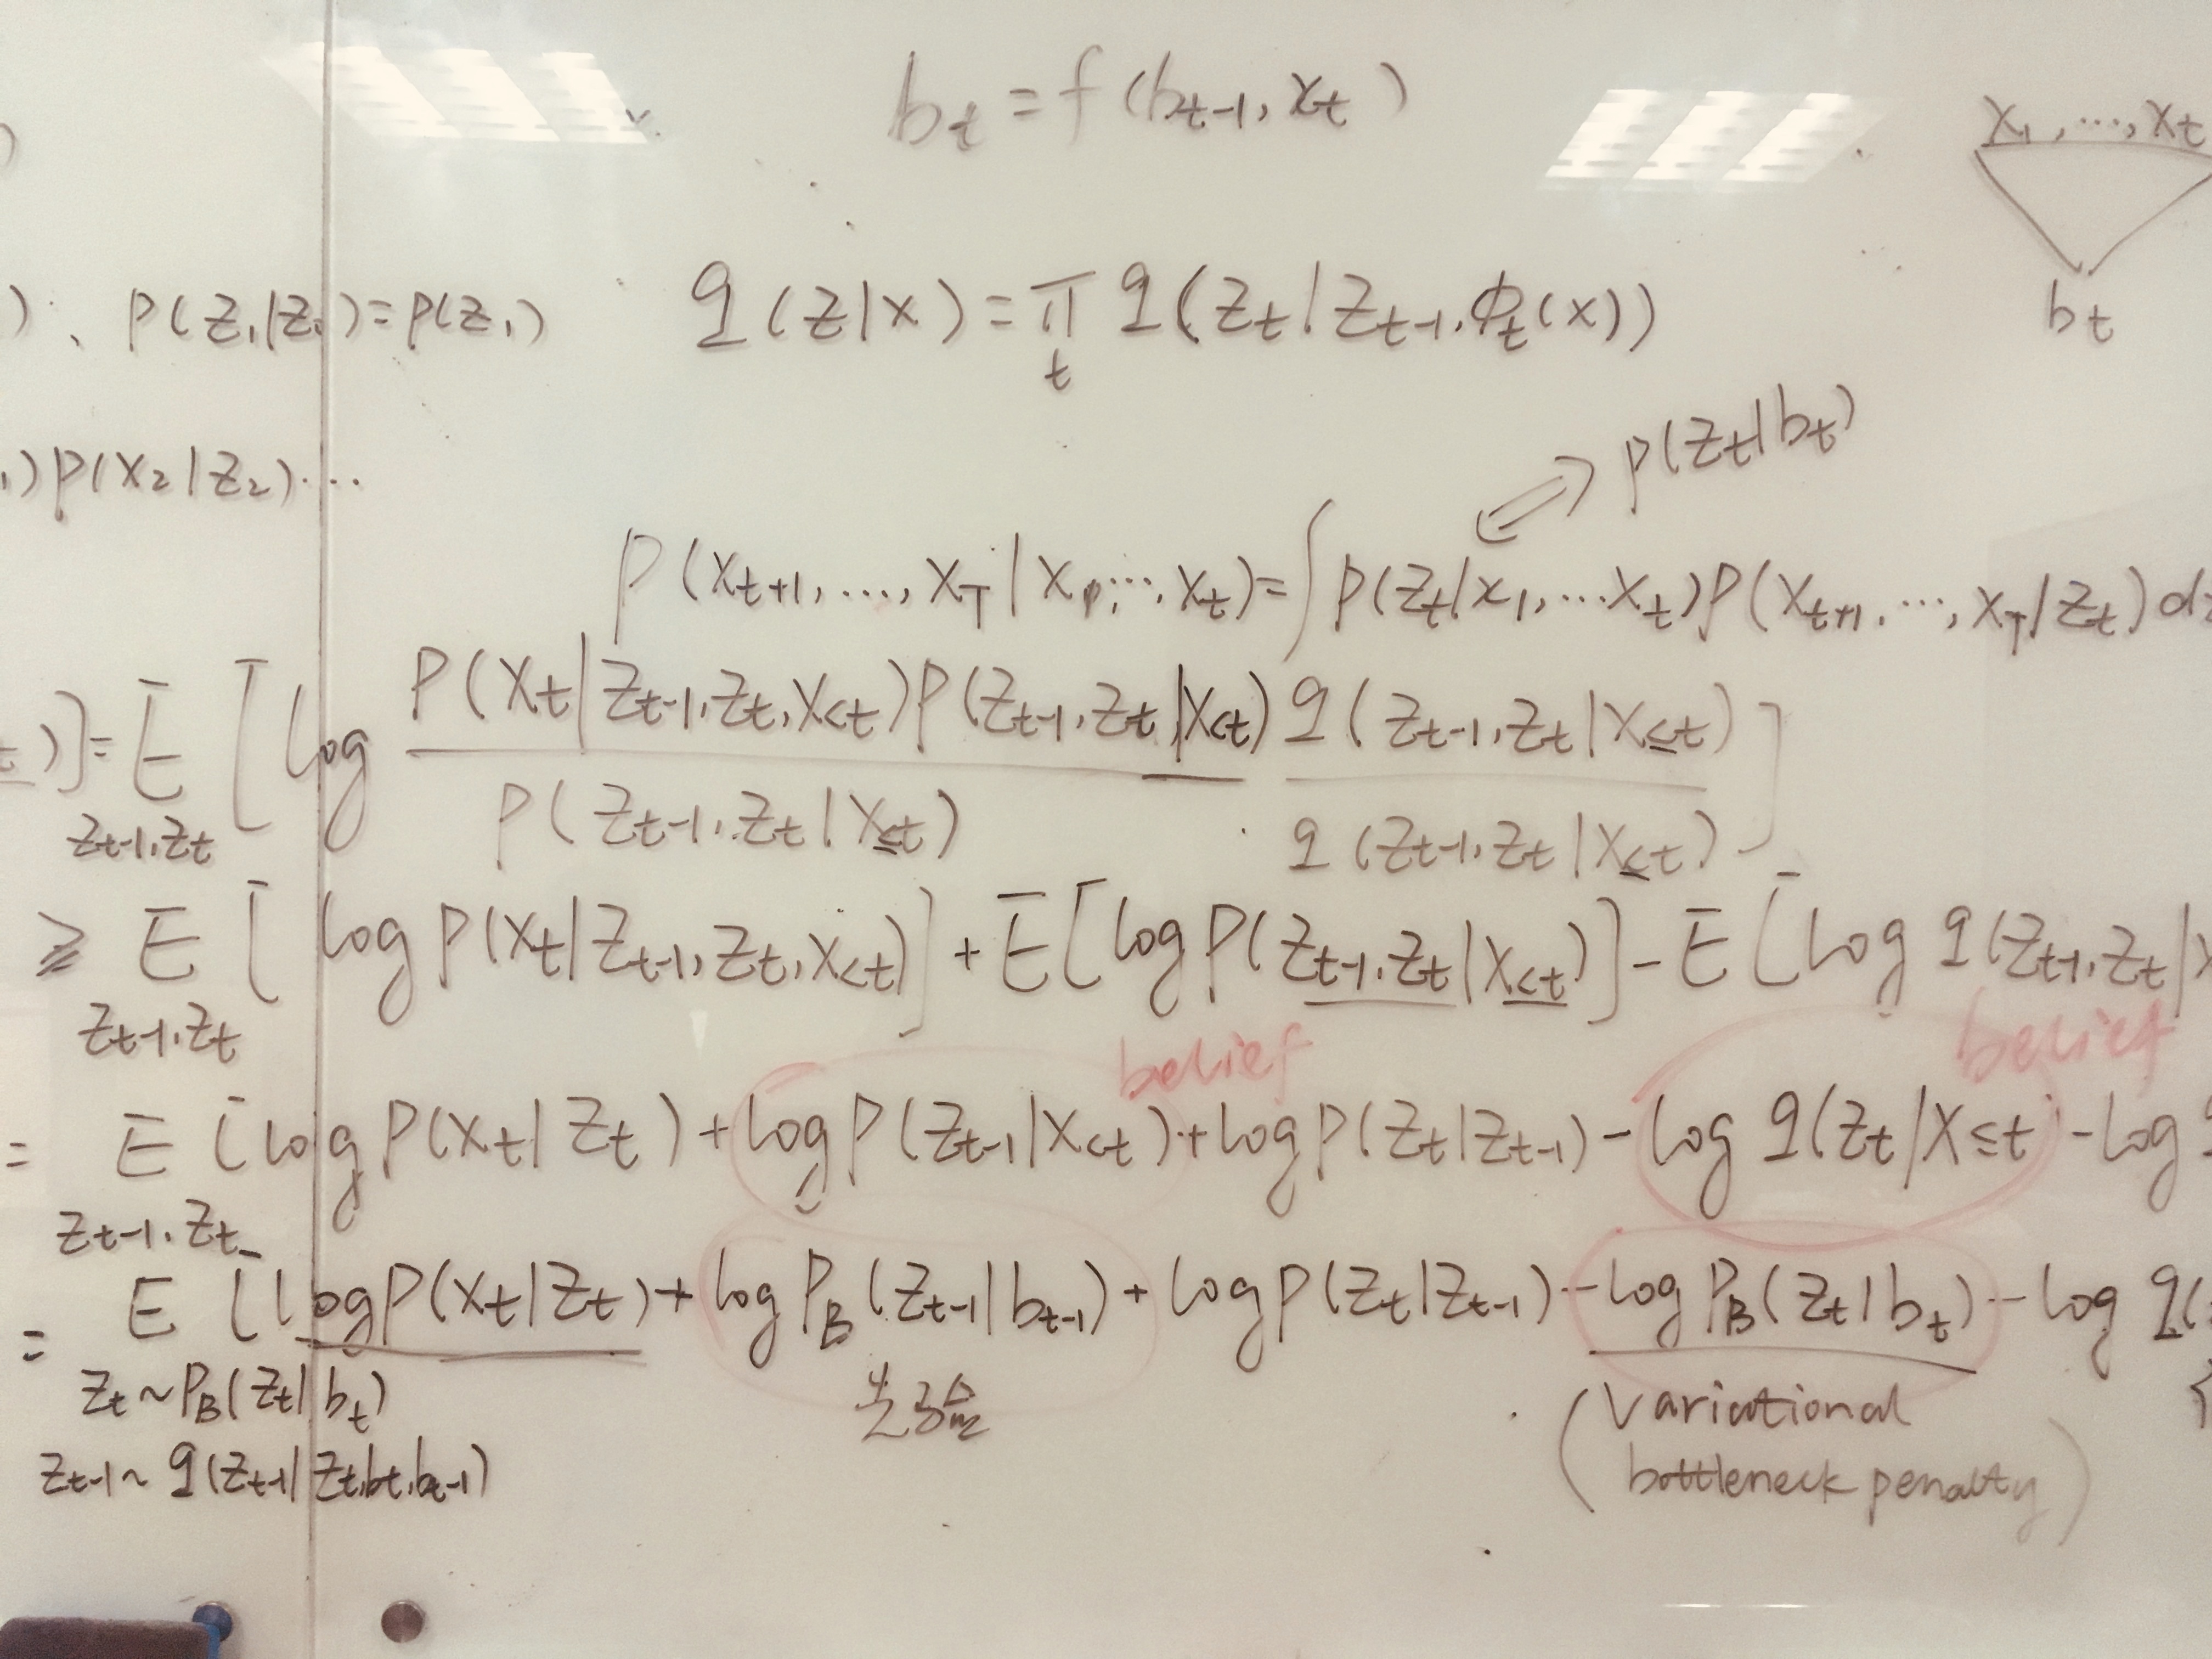 b_t = f(b_{t-1}, x_t)
x_1, ..., x_t
b_t
). p(z_1|z_0) = p(z_1)
q(z|x) = π_t q(z_t|z_{t-1}, Φ_t(x))
p(z_t|b_t)
1) p(x_2|z_2)...
p(x_{t+1}, ..., x_T | x_1, ..., x_t) = ∫ p(z_t|x_1, ... x_t) p(x_{t+1}, ..., x_T|z_t) dz
t)] = E_{z_{t-1}, z_t} [log p(x_t|z_{t-1}, z_t, x_{<t}) p(z_{t-1}, z_t|x_{<t}) / p(z_{t-1}, z_t|x_{≤t}) · q(z_{t-1}, z_t|x_{≤t}) / q(z_{t-1}, z_t|x_{≤t})]
≥ E_{z_{t-1}, z_t} [log p(x_t|z_{t-1}, z_t, x_{<t})] + E[log p(z_{t-1}, z_t|x_{<t})] - E[log q(z_{t-1}, z_t|x
belief belief
= E_{z_{t-1}, z_t} [log p(x_t|z_t) + log p(z_{t-1}|x_{<t}) + log p(z_t|z_{t-1}) - log q(z_t|x_{≤t}) - log q
= E [log p(x_t|z_t) + log p_B(z_{t-1}|b_{t-1}) + log p(z_t|z_{t-1}) - log p_B(z_t|b_t) - log q(
z_t ~ p_B(z_t|b_t)
z_{t-1} ~ q(z_{t-1}|z_t, b_t, b_{t-1})
先验
(Variational
bottleneck penalty)